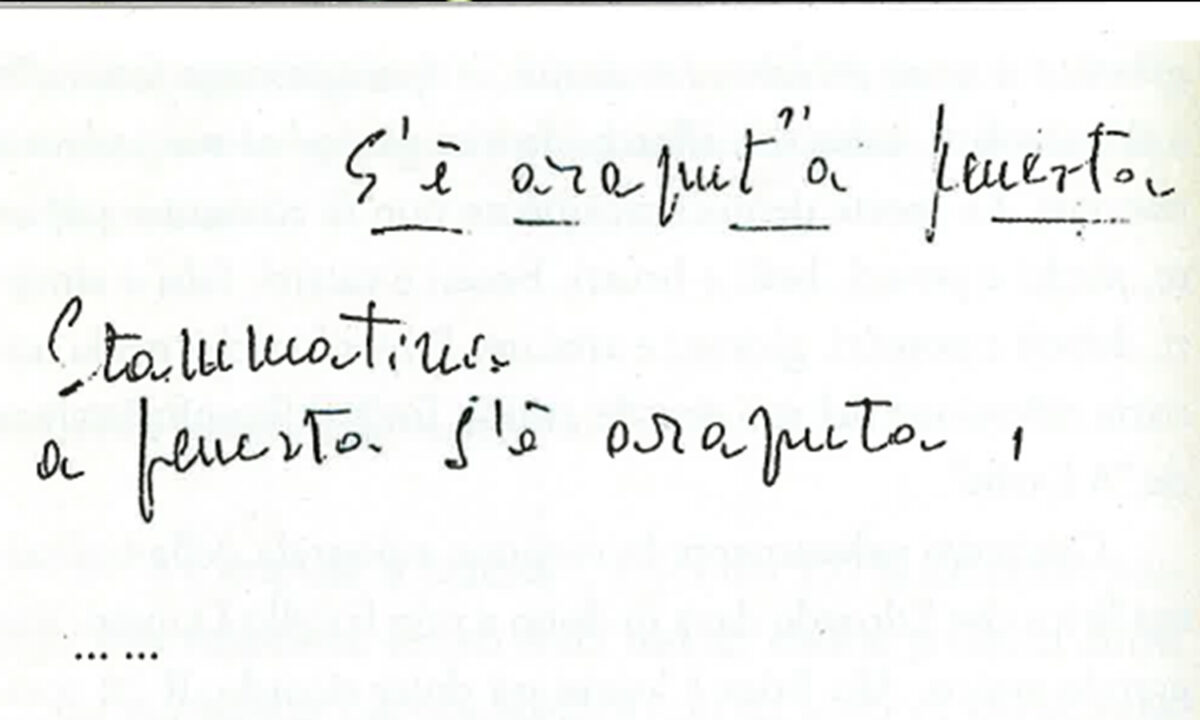 S'è araput''a fenesta
Stammatina
a fenesta s'è araputa,
... ...